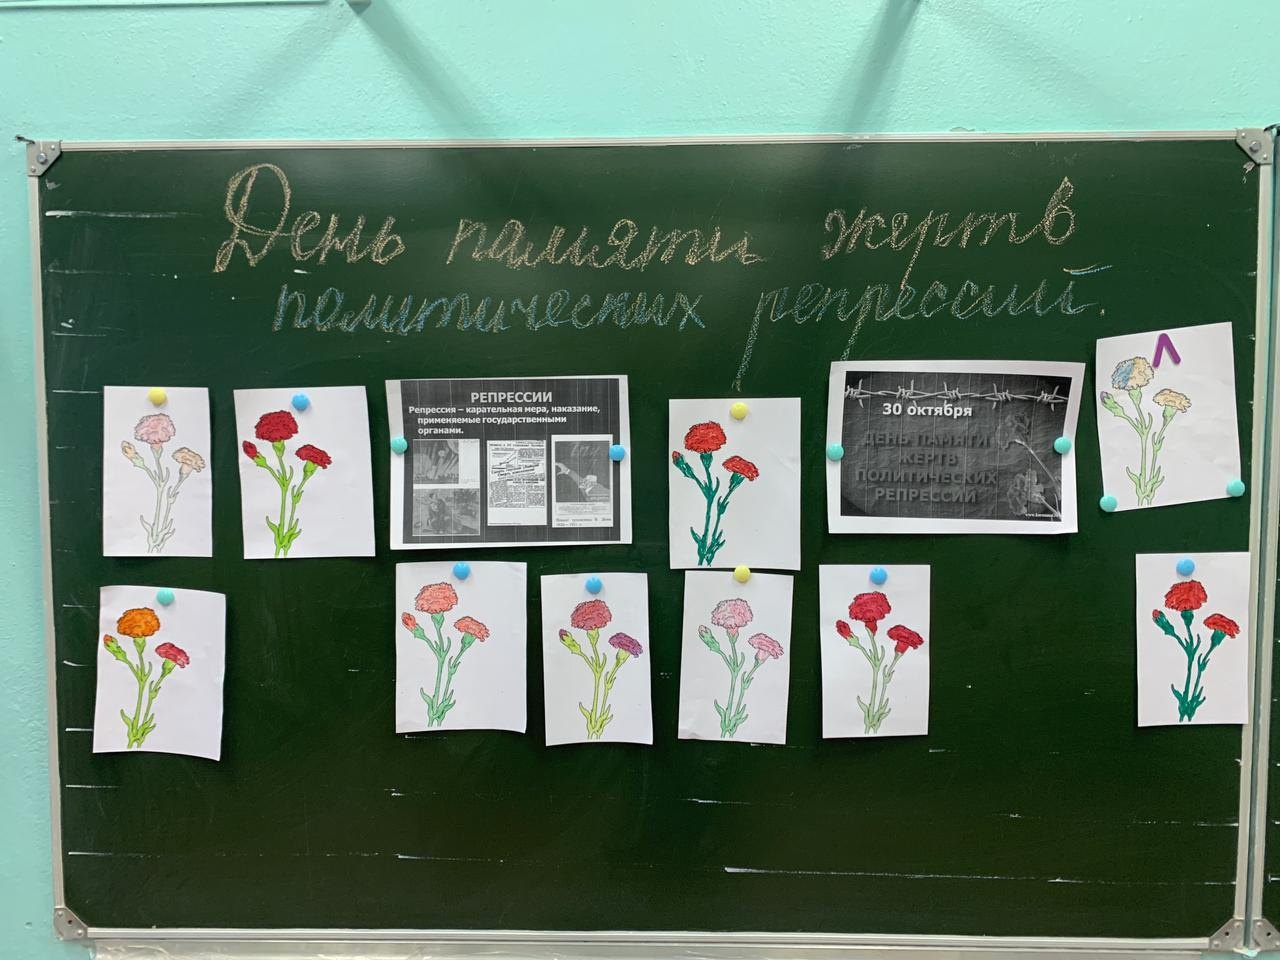 День памяти жертв
политических репрессий.
РЕПРЕССИИ
Репрессия – карательная мера, наказание,
применяемые государственными
органами.
30 октября
ДЕНЬ ПАМЯТИ
ЖЕРТВ
ПОЛИТИЧЕСКИХ
РЕПРЕССИЙ
Л